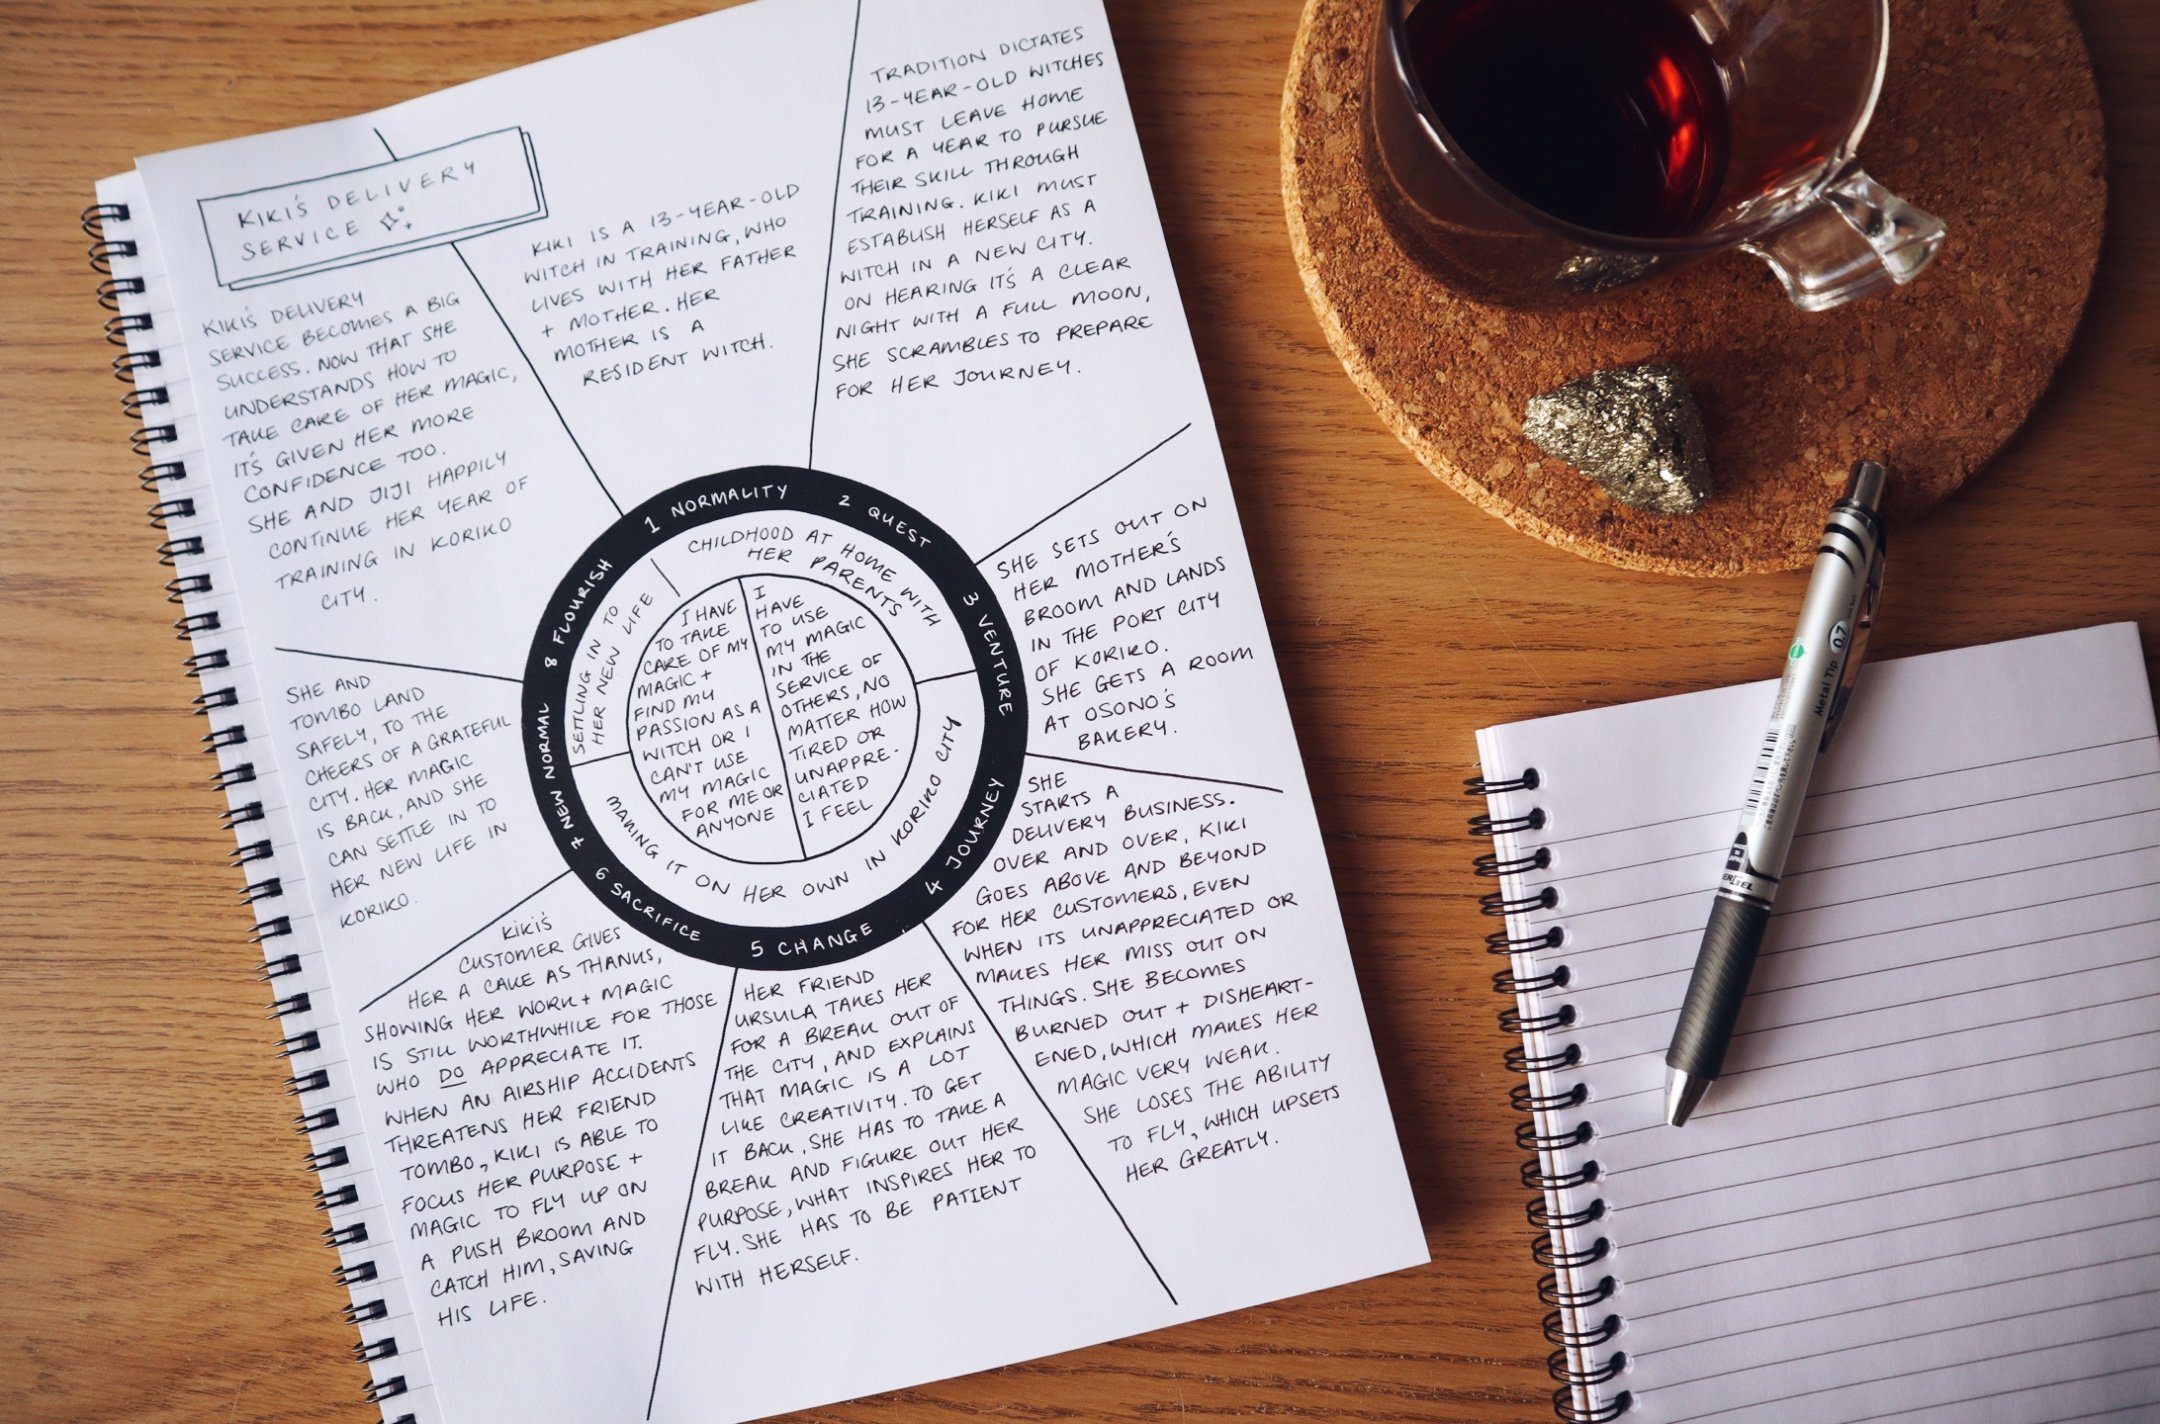 KIKI'S DELIVERY
SERVICE
KIKI IS A 13-YEAR-OLD
WITCH IN TRAINING, WHO
LIVES WITH HER FATHER
+ MOTHER. HER
MOTHER IS A
RESIDENT WITCH.
TRADITION DICTATES
13-YEAR-OLD WITCHES
MUST LEAVE HOME
FOR A YEAR TO PURSUE
THEIR SKILL THROUGH
TRAINING. KIKI MUST
ESTABLISH HERSELF AS A
WITCH IN A NEW CITY.
ON HEARING IT'S A CLEAR
NIGHT WITH A FULL MOON,
SHE SCRAMBLES TO PREPARE
FOR HER JOURNEY.
SHE SETS OUT ON
HER MOTHER'S
BROOM AND LANDS
IN THE PORT CITY
OF KORIKO.
SHE GETS A ROOM
AT OSONO'S
BAKERY.
SHE
STARTS A
DELIVERY BUSINESS.
OVER AND OVER, KIKI
GOES ABOVE AND BEYOND
FOR HER CUSTOMERS, EVEN
WHEN ITS UNAPPRECIATED OR
MAKES HER MISS OUT ON
THINGS. SHE BECOMES
BURNED OUT + DISHEART-
ENED, WHICH MAKES HER
MAGIC VERY WEAK.
SHE LOSES THE ABILITY
TO FLY, WHICH UPSETS
HER GREATLY.
HER FRIEND
URSULA TAKES HER
FOR A BREAK OUT OF
THE CITY, AND EXPLAINS
THAT MAGIC IS A LOT
LIKE CREATIVITY. TO GET
IT BACK, SHE HAS TO TAKE A
BREAK AND FIGURE OUT HER
PURPOSE, WHAT INSPIRES HER TO
FLY. SHE HAS TO BE PATIENT
WITH HERSELF.
KIKI'S
CUSTOMER GIVES
HER A CAKE AS THANKS,
SHOWING HER WORK + MAGIC
IS STILL WORTHWHILE FOR THOSE
WHO DO APPRECIATE IT.
WHEN AN AIRSHIP ACCIDENTS
THREATENS HER FRIEND
TOMBO, KIKI IS ABLE TO
FOCUS HER PURPOSE +
MAGIC TO FLY UP ON
A PUSH BROOM AND
CATCH HIM, SAVING
HIS LIFE.
SHE AND
TOMBO LAND
SAFELY, TO THE
CHEERS OF A GRATEFUL
CITY. HER MAGIC
IS BACK, AND SHE
CAN SETTLE IN TO
HER NEW LIFE IN
KORIKO.
KIKI'S DELIVERY
SERVICE BECOMES A BIG
SUCCESS. NOW THAT SHE
UNDERSTANDS HOW TO
TAKE CARE OF HER MAGIC,
IT'S GIVEN HER MORE
CONFIDENCE TOO.
SHE AND JIJI HAPPILY
CONTINUE HER YEAR OF
TRAINING IN KORIKO
CITY.
1 NORMALITY
2 QUEST
3 VENTURE
4 JOURNEY
5 CHANGE
6 SACRIFICE
7 NEW NORMAL
8 FLOURISH
CHILDHOOD AT HOME WITH
HER PARENTS
MAKING IT ON HER OWN IN KORIKO CITY
SETTLING IN TO
HER NEW LIFE
I HAVE
TO TAKE
CARE OF MY
MAGIC +
FIND MY
PASSION AS A
WITCH OR I
CAN'T USE
MY MAGIC
FOR ME OR
ANYONE
I
HAVE
TO USE
MY MAGIC
IN THE
SERVICE OF
OTHERS, NO
MATTER HOW
TIRED OR
UNAPPRE-
CIATED
I FEEL
Metal Tip 0.7